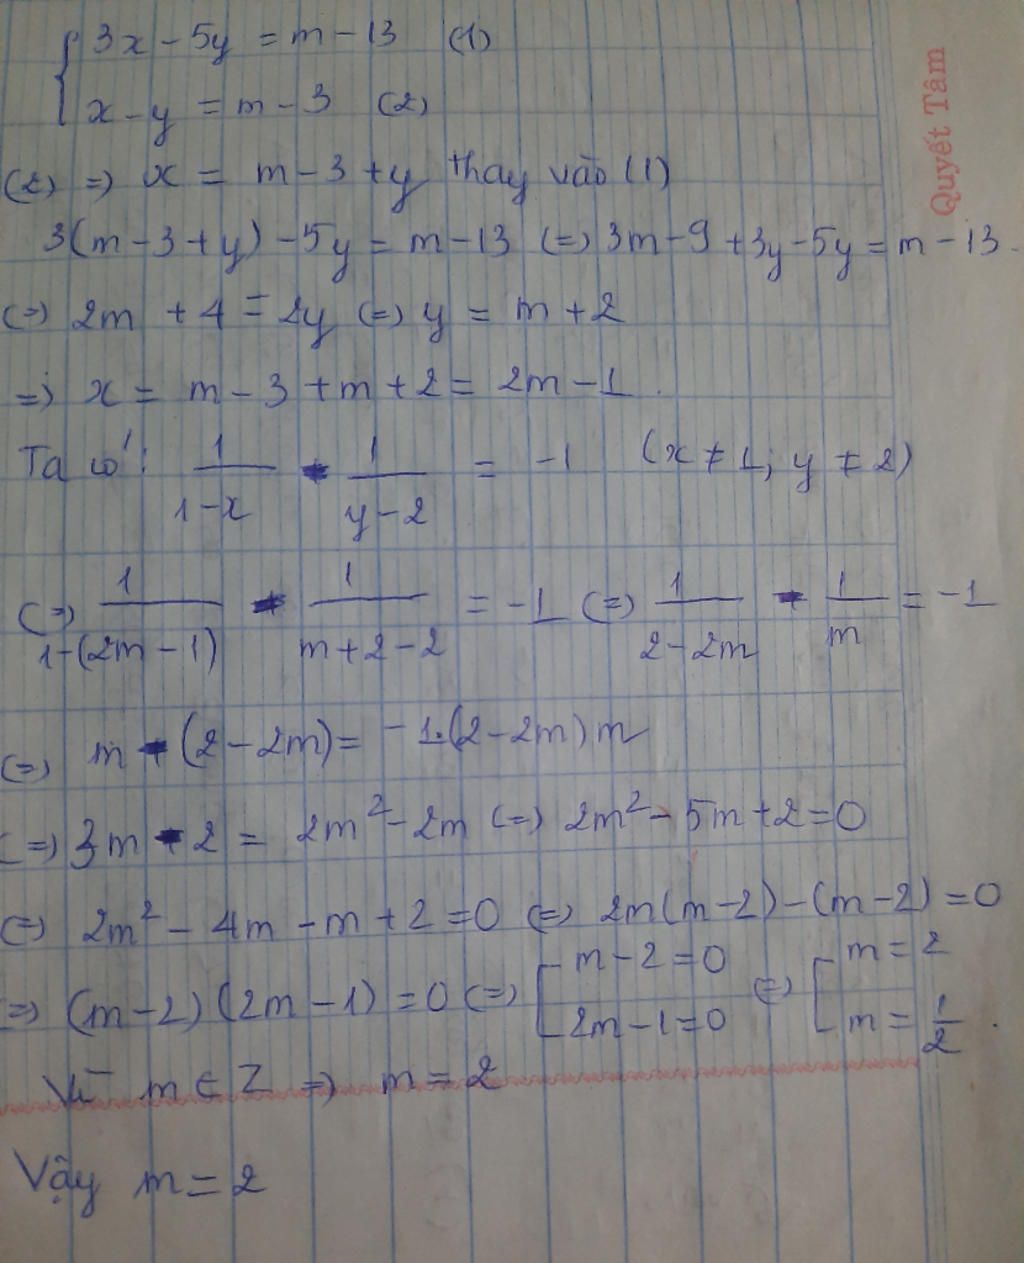 { 3x - 5y = m - 13 (1)
x - y = m - 3 (2)
(2) => x = m - 3 + y thay vào (1)
3(m - 3 + y) - 5y = m - 13 (=) 3m - 9 + 3y - 5y = m - 13.
(=) 2m + 4 = 2y (=) y = m + 2
=> x = m - 3 + m + 2 = 2m - 1.
Ta có: 1/(1 - x) - 1/(y - 2) = -1 (x ≠ 1; y ≠ 2)
(=>) 1/(1 - (2m - 1)) - 1/(m + 2 - 2) = -1 (=) 1/(2 - 2m) - 1/m = -1
(=) m - (2 - 2m) = -1.(2 - 2m)m
(=) 3m - 2 = 2m² - 2m (=) 2m² - 5m + 2 = 0
(=) 2m² - 4m - m + 2 = 0 (=) 2m(m - 2) - (m - 2) = 0
=> (m - 2)(2m - 1) = 0 (=) [ m - 2 = 0 (=) [ m = 2
2m - 1 = 0 m = 1/2.
Vì m ∈ Z => m = 2
Vậy m = 2
Quyết Tâm